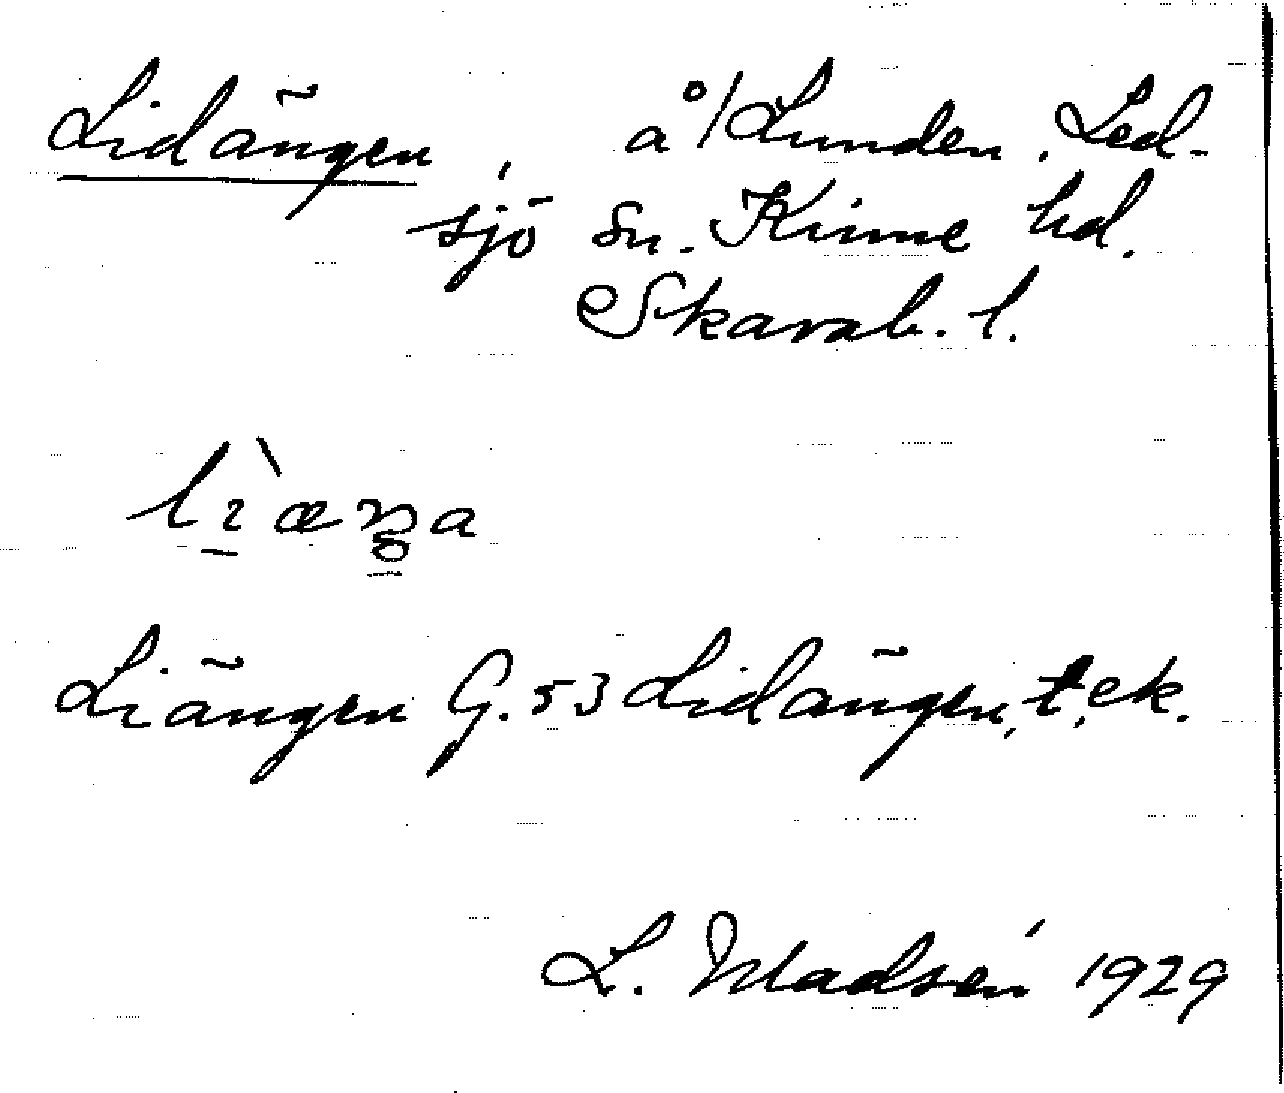 Lidängen, å/Lunden, Led-
sjö sn. Kinne hd.
Skarab. l.
Liängen G. 53 Lidängen, t, ek.
L. Madsén 1929